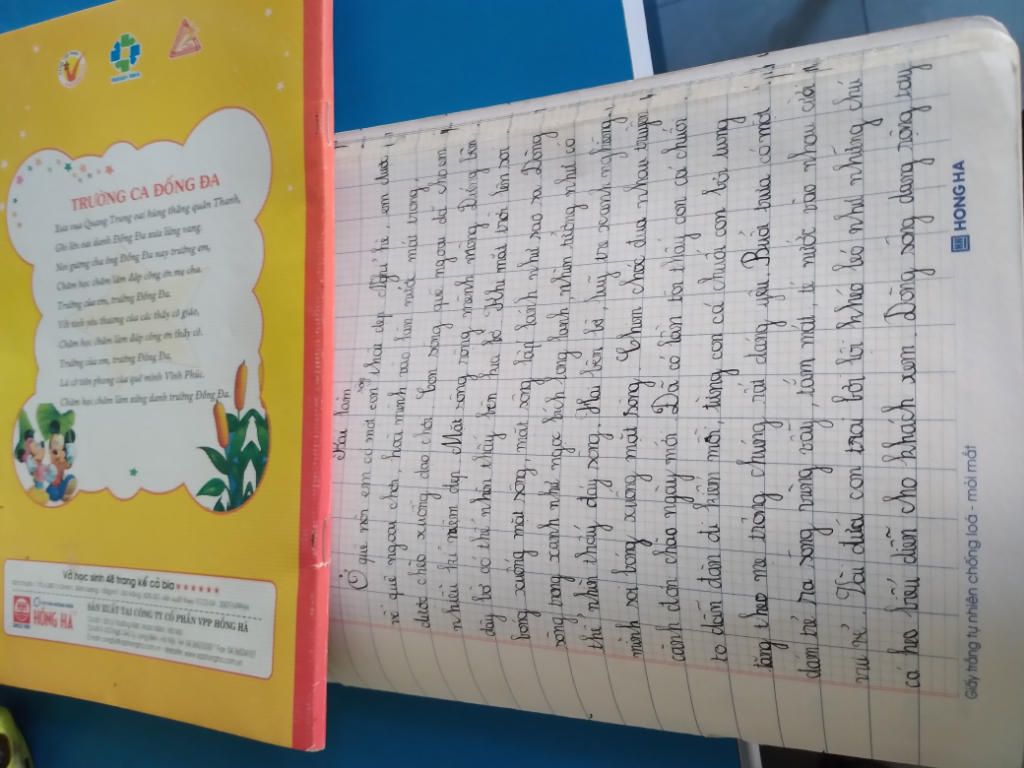 TRƯỜNG CA ĐỐNG ĐA
Xưa vua Quang Trung oai hùng thắng quân Thanh,
Ghi lên nơi danh Đống Đa xưa lừng vang.
Noi gương cha ông Đống Đa nay trường em,
Chăm học chăm làm đáp công ơn mẹ cha.
Trường của em, trường Đống Đa.
Với tình yêu thương của các thầy cô giáo,
Chăm học chăm làm đáp công ơn thầy cô.
Trường của em, trường Đống Đa,
Lá cờ tiên phong của quê mình Vĩnh Phúc,
Chăm học chăm làm xứng danh trường Đống Đa.
Vở học sinh 48 trang kể cả bìa ★★★★★★
HỒNG HÀ
SẢN XUẤT TẠI CÔNG TY CỔ PHẦN VPP HỒNG HÀ
Bài làm
Ở quê nội em có một con sông thật đẹp. Nghỉ hè, em được
về quê ngoại chơi, hoà mình vào làn nước mát trong,
được chèo xuồng dạo chơi. Con sông quê ngoại để cho em
nhiều kỉ niệm đẹp. Mặt sông rộng mênh mông. Đứng bên
đây bờ có thể nhìn thấy bên kia bờ. Khi mặt trời lên soi
bóng xuống mặt sông, mặt sông lấp lánh như sao sa. Dòng
sông trong xanh như ngọc bích long lanh, nhìn tưởng như có
thể nhìn thấy đáy sông. Hai bên bờ, luỹ tre xanh nghiêng
mình soi bóng xuống mặt sông. Chim chóc đua nhau truyền
cành đón chào ngày mới. Đã có lần tôi thấy con cá chuối
to dẫn đàn đi kiếm mồi, từng con cá chuối con bơi tung
tăng theo mẹ trông chúng rất đáng yêu. Buổi trưa có một
đám trẻ ra sông vùng vẫy, tắm mát, té nước vào nhau cười
vui vẻ. Vài đứa con trai bơi lội khéo léo như những chú
cá heo biểu diễn cho khách xem. Dòng sông dang rộng tay
Giấy trắng tự nhiên chống loá - mỏi mắt
HONG HA